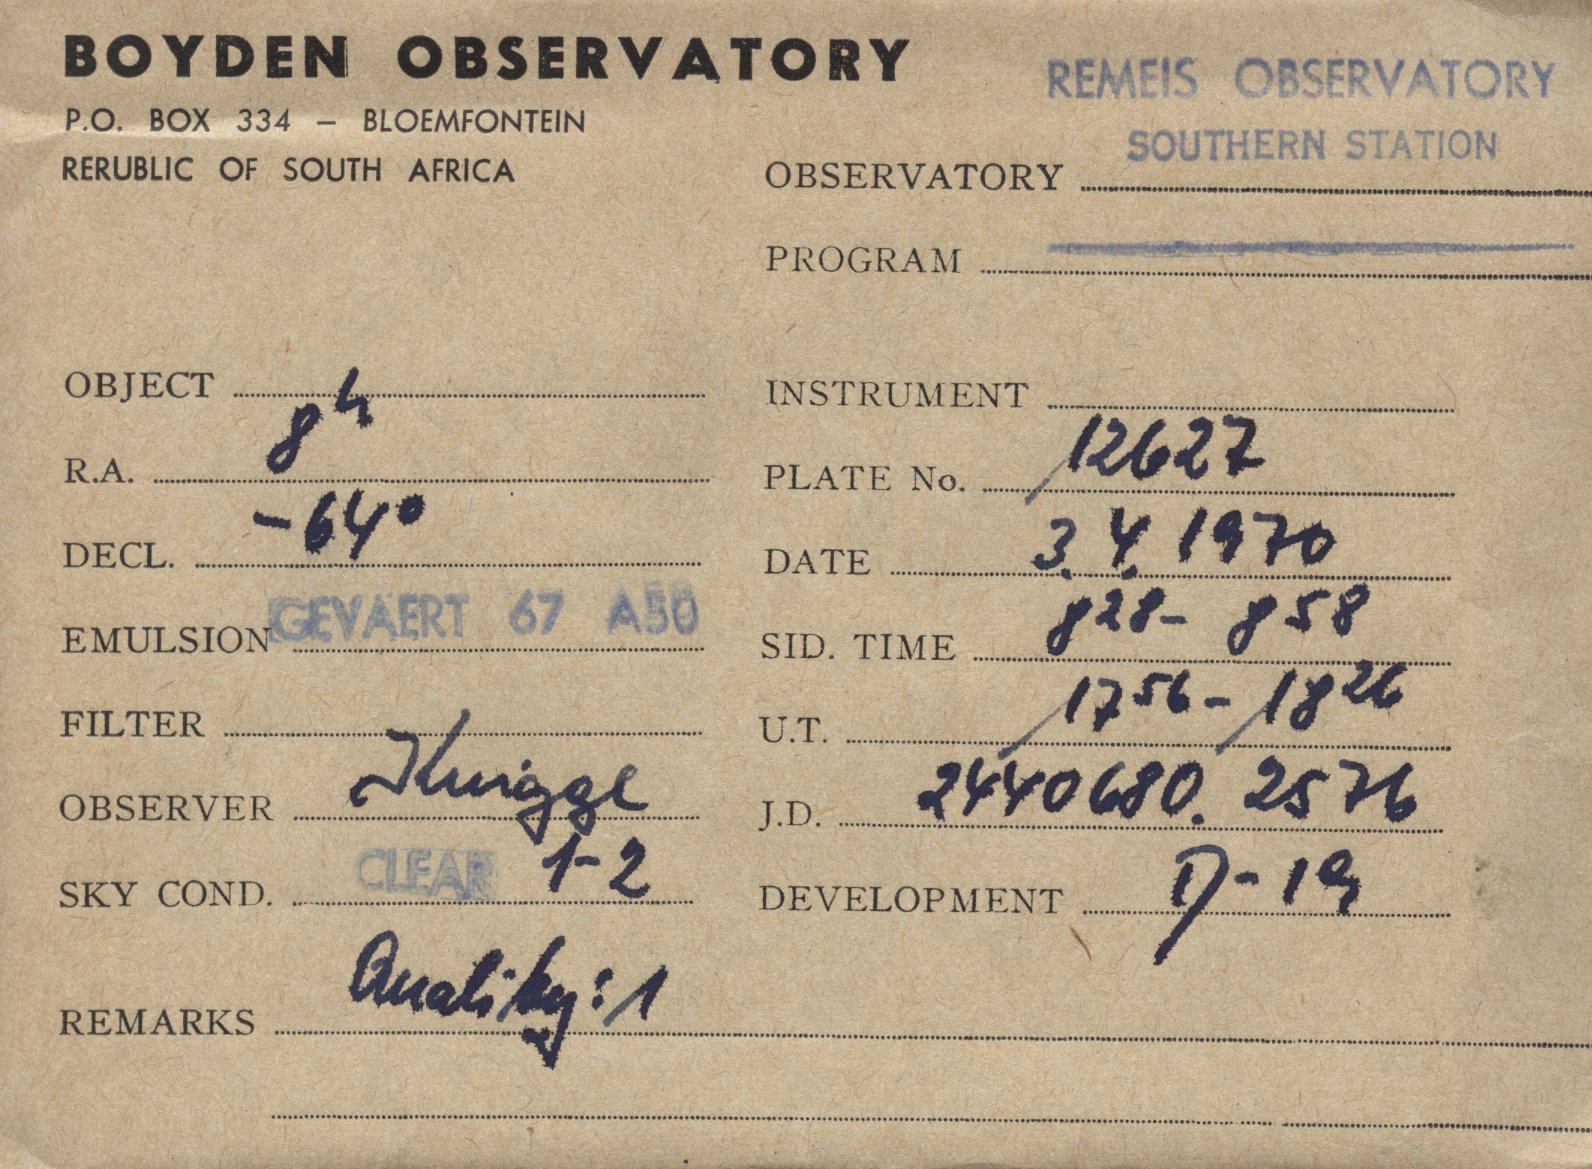 BOYDEN OBSERVATORY
P.O. BOX 334 – BLOEMFONTEIN
RERUBLIC OF SOUTH AFRICA
REMEIS OBSERVATORY
SOUTHERN STATION
OBSERVATORY
PROGRAM
OBJECT
R.A. 8h
DECL. -64°
EMULSION GEVAERT 67 A50
FILTER
OBSERVER Knigge
SKY COND. CLEAR 1-2
INSTRUMENT
PLATE No. 12627
DATE 3.4.1970
SID. TIME 8 28 - 8 58
U.T. 17 56 - 18 26
J.D. 2440680.2576
DEVELOPMENT D-19
REMARKS Quality: 1